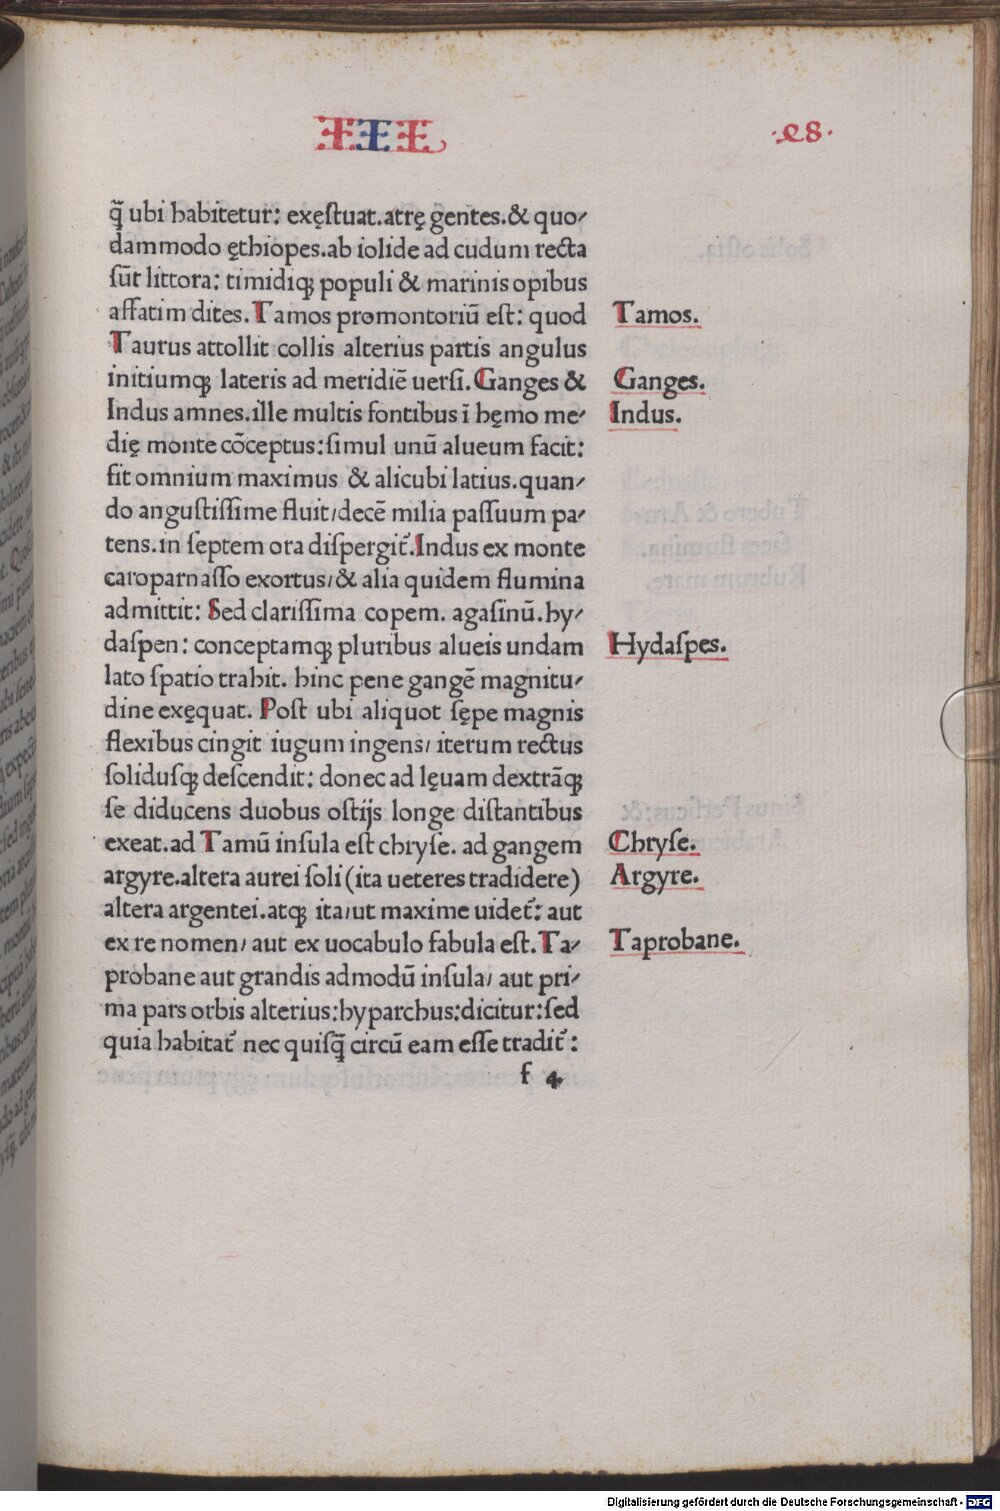 III
·e8·
q̃ ubi habitetur: exęſtuat.atrę gentes.& quo⸗
dammodo ęthiopes.ab iolide ad cudum recta
ſũt littora: timidiqꝫ populi & marinis opibus
affatim dites. Tamos promontoriũ eſt: quod
Tamos.
Taurus attollit collis alterius partis angulus
initiumqꝫ lateris ad meridiẽ uerſi. Ganges &
Ganges.
Indus amnes.ille multis fontibus ĩ hęmo me⸗
Indus.
dię monte cõceptus: ſimul unũ alueum facit:
fit omnium maximus & alicubi latius.quan⸗
do anguſtiſſime fluit/decẽ milia paſſuum pa⸗
tens.in ſeptem ora diſpergit᷑.Indus ex monte
caroparnaſſo exortus/& alia quidem flumina
admittit: Sed clariſſima copem. agaſinũ.hy⸗
daſpen: conceptamqꝫ pluribus alueis undam
Hydaſpes.
lato ſpatio trahit. hinc pene gangẽ magnitu⸗
dine exęquat. Poſt ubi aliquot ſępe magnis
flexibus cingit iugum ingens/ iterum rectus
ſolidusqꝫ deſcendit: donec ad lęuam dextrãqꝫ
ſe diducens duobus oſtijs longe diſtantibus
exeat.ad Tamũ inſula eſt chryſe. ad gangem
Chryſe.
argyre.altera aurei ſoli (ita ueteres tradidere)
Argyre.
altera argentei.atqꝫ ita/ut maxime uidet᷑: aut
ex re nomen/ aut ex uocabulo fabula eſt.Ta⸗
Taprobane.
probane aut grandis admodũ inſula/ aut pri⸗
ma pars orbis alterius:hyparchus:dicitur:ſed
quia habitat᷑ nec quiſq̃ circũ eam eſſe tradit᷑:
f 4
Digitalisierung gefördert durch die Deutsche Forschungsgemeinschaft - DFG